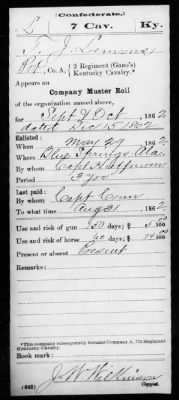 (Confederate.)
L 7 Cav. Ky.
T. J. Lemons
Pvt, Co. A, 2 Regiment (Gano's) Kentucky Cavalry.*
Appears on
Company Muster Roll
of the organization named above,
for Sept & Oct, 1862.
dated Dec 15 1862
Enlisted:
When May 29, 186
Where Blue Springs
By whom Capt
Period
Last paid:
By whom Capt
To what time Aug 31, 1862
Use and risk of gun days; $
Use and risk of horse 60 days; $ 24 00
Present or absent Present
Remarks:
*This company subsequently became Company, 7th Regiment Kentucky Cavalry.
Book mark:
J. W. Wilkinson
(642) Copyist.